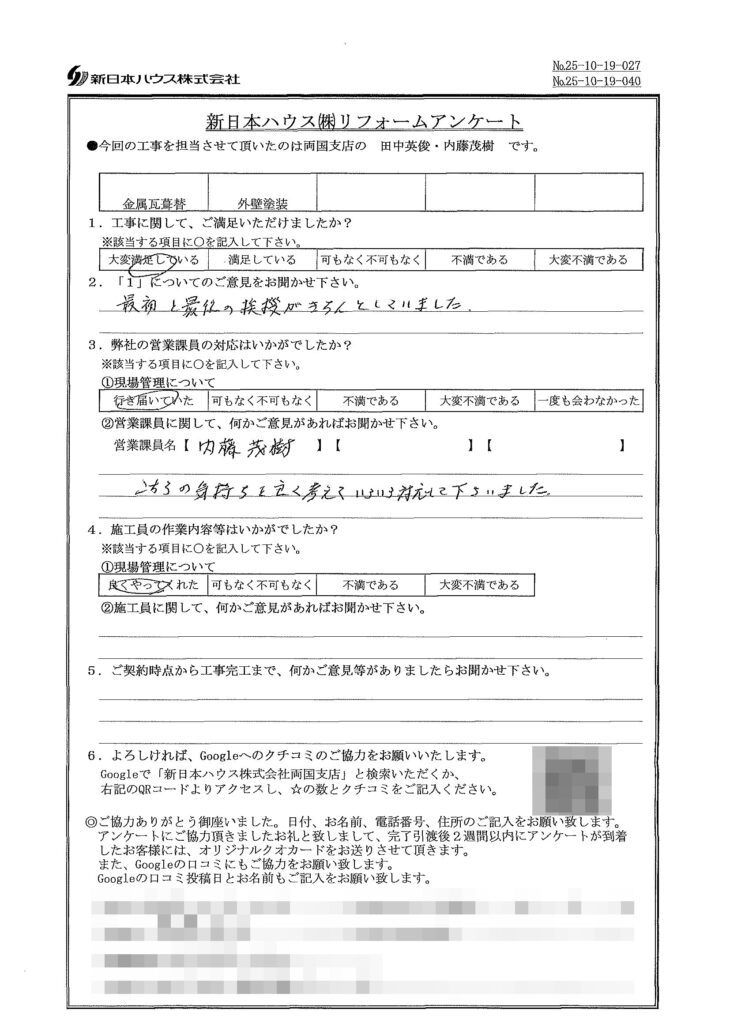 新日本ハウス株式会社
№25-10-19-027
№25-10-19-040
新日本ハウス㈱リフォームアンケート
●今回の工事を担当させて頂いたのは両国支店の 田中英俊・内藤茂樹 です。
金属瓦葺替 外壁塗装
1．工事に関して、ご満足いただけましたか？
※該当する項目に○を記入して下さい。
大変満足している 満足している 可もなく不可もなく 不満である 大変不満である
2．「1」についてのご意見をお聞かせ下さい。
最初と最后の挨拶がきちんとしていました。
3．弊社の営業課員の対応はいかがでしたか？
※該当する項目に○を記入して下さい。
①現場管理について
行き届いていた 可もなく不可もなく 不満である 大変不満である 一度も会わなかった
②営業課員に関して、何かご意見があればお聞かせ下さい。
営業課員名【 内藤茂樹 】【 】【 】
こちらの気持ちを良く考えていろいろ対応して下さいました。
4．施工員の作業内容等はいかがでしたか？
※該当する項目に○を記入して下さい。
①現場管理について
良くやってくれた 可もなく不可もなく 不満である 大変不満である
②施工員に関して、何かご意見があればお聞かせ下さい。
5．ご契約時点から工事完工まで、何かご意見等がありましたらお聞かせ下さい。
6．よろしければ、Googleへのクチコミのご協力をお願いいたします。
Googleで「新日本ハウス株式会社両国支店」と検索いただくか、
右記のQRコードよりアクセスし、☆の数とクチコミをご記入ください。
◎ご協力ありがとう御座いました。日付、お名前、電話番号、住所のご記入をお願い致します。
アンケートにご協力頂きましたお礼と致しまして、完了引渡後2週間以内にアンケートが到着
したお客様には、オリジナルクオカードをお送りさせて頂きます。
また、Googleの口コミにもご協力をお願い致します。
Googleの口コミ投稿日とお名前もご記入をお願い致します。